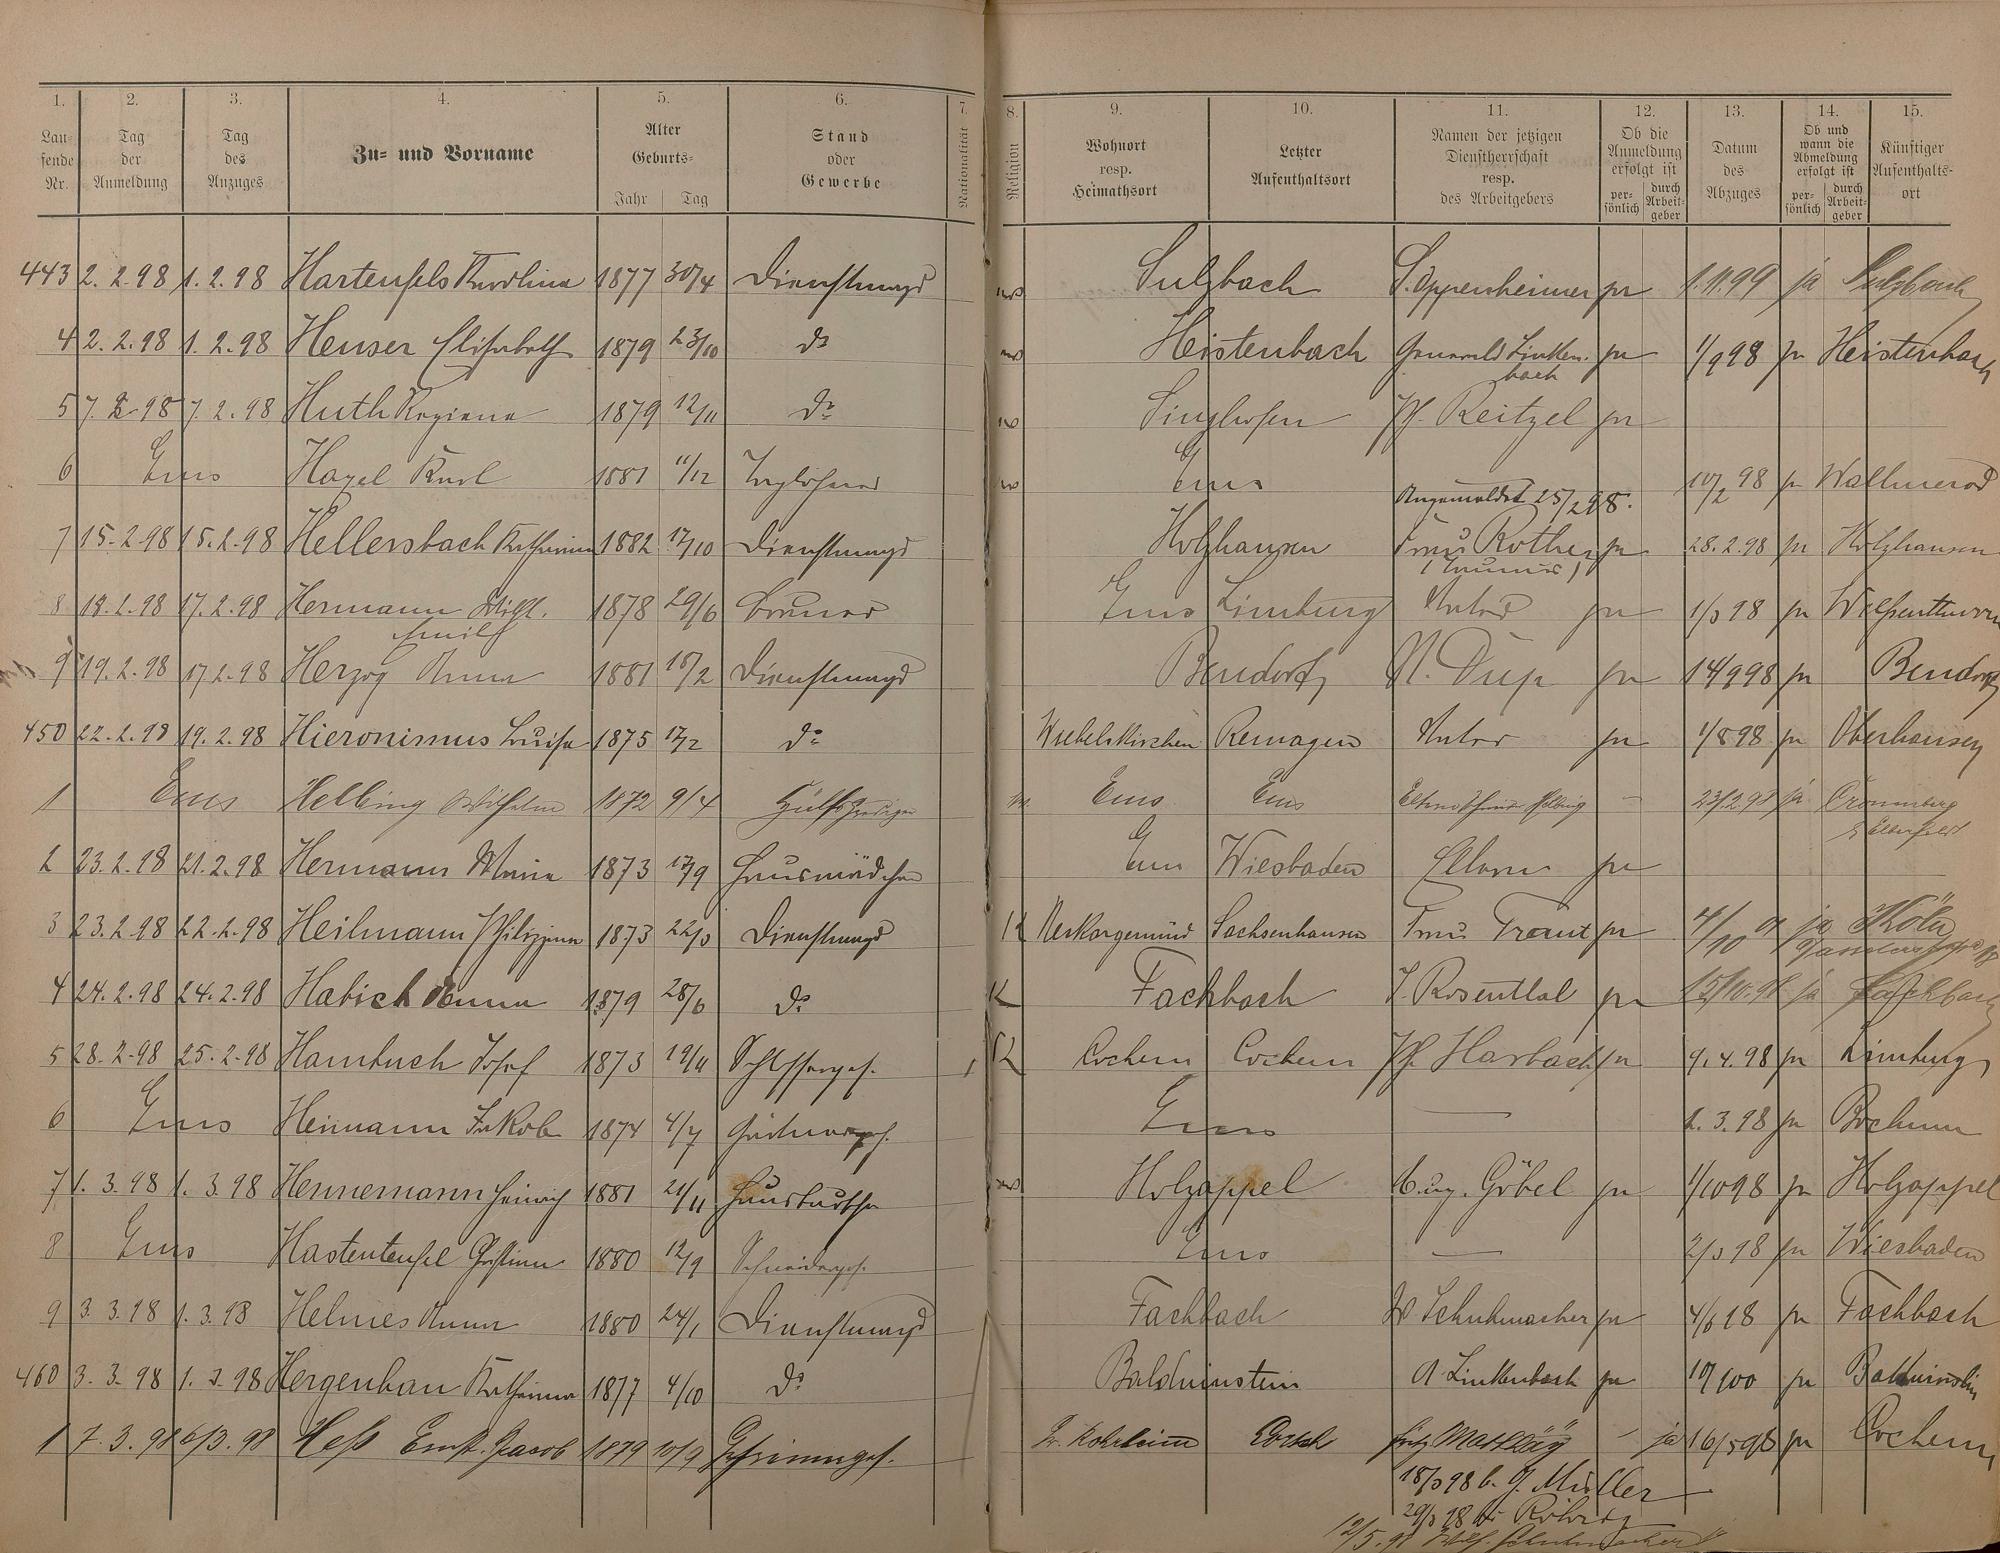 1. 2. 3. 4. 5. 6. 7. 8. 9. 10. 11. 12. 13. 14. 15.
Laufende Nr.
Tag der Anmeldung
Tag des Anzuges
Zu- und Vorname
Alter
Geburts-
Jahr Tag
Stand oder Gewerbe
Nationalität
Religion
Wohnort resp. Heimathsort
Letzter Aufenthaltsort
Namen der jetzigen Dienstherrschaft resp. des Arbeitgebers
Ob die Anmeldung erfolgt ist
persönlich durch Arbeitgeber
Datum des Abzuges
Ob und wann die Abmeldung erfolgt ist
persönlich durch Arbeitgeber
Künftiger Aufenthaltsort
443 2.2.98 1.2.98 Hartenfels Karolina 1877 30/4 Dienstmagd Sulzbach S. Oppenheimer 1.11.99 ja Sulzbach
4 2.2.98 1.2.98 Heuser Elisabeth 1879 23/10 do Heistenbach Linkenbach 1/9 98 Heistenbach
5 7.2.98 7.2.98 Huth Regiena 1879 12/11 do Singhofen Reitzel
6 Ems Hagel Karl 1881 11/12 Taglöhner Ems 10/2 98 Wallmerod
Angemeldet 25/2 98.
7 15.2.98 15.2.98 Hellersbach Katharina 1882 17/10 Dienstmagd Holzhausen Frau Rother 28.2.98 Holzhausen
8 18.2.98 17.2.98 Hermann Wilh. Emil 1878 29/6 Ems Limburg 1/3 98
9 19.2.98 17.2.98 Herzog Anna 1881 18/2 Dienstmagd Bendorf 14/9 98 Bendorf
450 22.2.98 19.2.98 Hieronimus Luise 1875 17/2 do Wiebelskirchen Remagen 1/8 98 Oberhausen
1 Ems Helbing Wilhelm 1872 9/4 Hülfsprediger Ems Ems Helbing - 23/2.98 ja Cronenberg
Elberfeld
2 23.2.98 21.2.98 Hermann Maria 1873 17/9 Hausmädchen Ems Wiesbaden Eltern
3 23.2.98 22.2.98 Heilmann Philippina 1873 22/3 Dienstmagd K Neckargemünd Sachsenhausen Frau Traut 4/10 01 ja Köln
4 24.2.98 24.2.98 Habich Anna 1879 28/6 do K Fachbach J. Rosenthal 15/10.98 ja Fachbach
5 28.2.98 25.2.98 Hambuch Josef 1873 19/11 Schlosserges. K Cochem Cochem Harbach 9.4.98 Limburg
6 Ems Heimann Jakob 1874 4/7 Ems 2.3.98 Bochum
7 1.3.98 1.3.98 Hennemann Heinrich 1881 21/11 Hausbursche Holzappel Aug. Göbel 1/10 98 Holzappel
8 Ems Hastenteufel Christina 1880 12/9 Ems 2/3 98 Wiesbaden
9 3.3.98 1.3.98 Helmes Anna 1880 24/1 Dienstmagd Fachbach W Schuhmacher 4/6 98 Fachbach
460 3.3.98 1.3.98 Hergenhan Katharina 1877 4/10 do Balduinstein A Linkenbach Balduinstein
1 7.3.98 6/3.98 Heß Ernst Jacob 1879 10/9 Fritz - ja 16/5 98 Cochem
18/3 98 b. J. Müller
29/3 98
12/5.98 Wilh. Schuhmacher